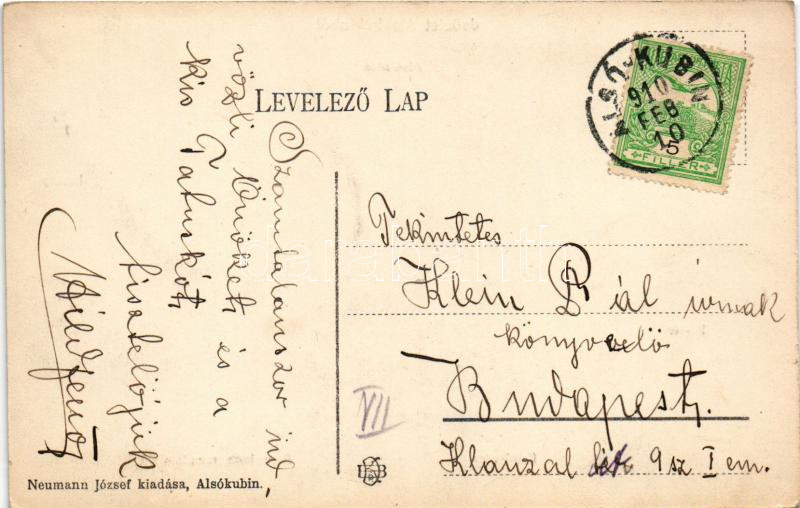 LEVELEZŐ LAP
ALSÓ-KUBIN
910
FEB
10
5
FILLÉR
Számtalanszor üd.
vözli Önöket és a
kis Tatuskót,
tisztelőjük
Hild Jenő
Tekintetes
Klein Pál úrnak
könyvvelő
Budapest.
VII
Klauzál 9 sz I em.
Neumann József kiadása, Alsókubin.